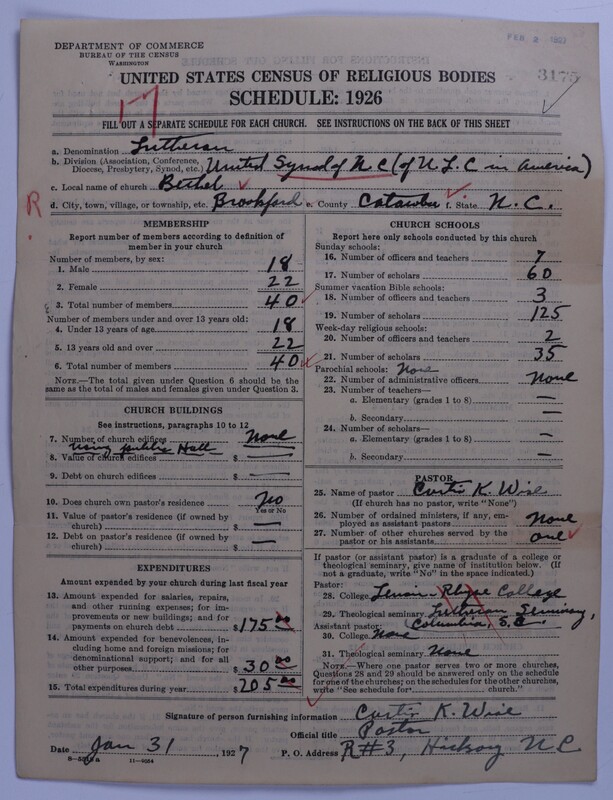 DEPARTMENT OF COMMERCE
BUREAU OF THE CENSUS
WASHINGTON
FEB 2
3175
UNITED STATES CENSUS OF RELIGIOUS BODIES
SCHEDULE: 1926
17
FILL OUT A SEPARATE SCHEDULE FOR EACH CHURCH. SEE INSTRUCTIONS ON THE BACK OF THIS SHEET
a. Denomination Lutheran
b. Division (Association, Conference, Diocese, Presbytery, Synod, etc.) United Synod of N C (of U. L. C in America)
c. Local name of church Bethel
R
d. City, town, village, or township, etc. Brookford e. County Catawba f. State N. C.
MEMBERSHIP
Report number of members according to definition of
member in your church
Number of members, by sex:
1. Male 18
2. Female 22
3. Total number of members 40
Number of members under and over 13 years old:
4. Under 13 years of age 18
5. 13 years old and over 22
6. Total number of members 40
NOTE.—The total given under Question 6 should be
same as the total of males and females given under Question 3.
CHURCH BUILDINGS
See instructions, paragraphs 10 to 12
7. Number of church edifices None
using public Hall
8. Value of church edifices $ —
9. Debt on church edifices $ —
10. Does church own pastor's residence No
Yes or No
11. Value of pastor's residence (if owned by
church) $ —
12. Debt on pastor's residence (if owned by
church) $ —
EXPENDITURES
Amount expended by your church during last fiscal year
13. Amount expended for salaries, repairs,
and other running expenses; for im-
provements on new buildings; and for
payments on church debt $175 00
14. Amount expended for benevolences,
including home and foreign missions; for
denominational support; and for all
other purposes $ 30 00
15. Total expenditures during year $ 205 00
CHURCH SCHOOLS
Report here only schools conducted by this church
Sunday schools:
16. Number of officers and teachers 7
17. Number of scholars 60
Summer vacation Bible schools:
18. Number of officers and teachers 3
19. Number of scholars 125
Week-day religious schools:
20. Number of officers and teachers 2
21. Number of scholars 35
Parochial schools: None
22. Number of administrative officers None
23. Number of teachers—
a. Elementary (grades 1 to 8) —
b. Secondary —
24. Number of scholars—
a. Elementary (grades 1 to 8) —
b. Secondary —
PASTOR
25. Name of pastor Curtis K. Wise
(If church has no pastor, write "None")
26. Number of ordained ministers, if any, em-
ployed as assistant pastors None
27. Number of other churches served by the
pastor or his assistants one
If pastor (or assistant pastor) is a graduate of a college or
theological seminary, give name of institution below. (If
not a graduate, write "No" in the space indicated.)
Pastor:
28. College Lenoir Rhyne College
29. Theological seminary Lutheran Seminary,
Assistant pastor: Columbia, S. C.
30. College None
31. Theological seminary None
NOTE.—Where one pastor serves two or more churches,
Questions 28 and 29 should be answered only on the schedule
for one of the churches; on the schedules for the other churches,
write "See schedule for church."
Signature of person furnishing information Curtis K. Wise
Official title Pastor
Date Jan 31 1927 P. O. Address R#3, Hickory N C
11—9084